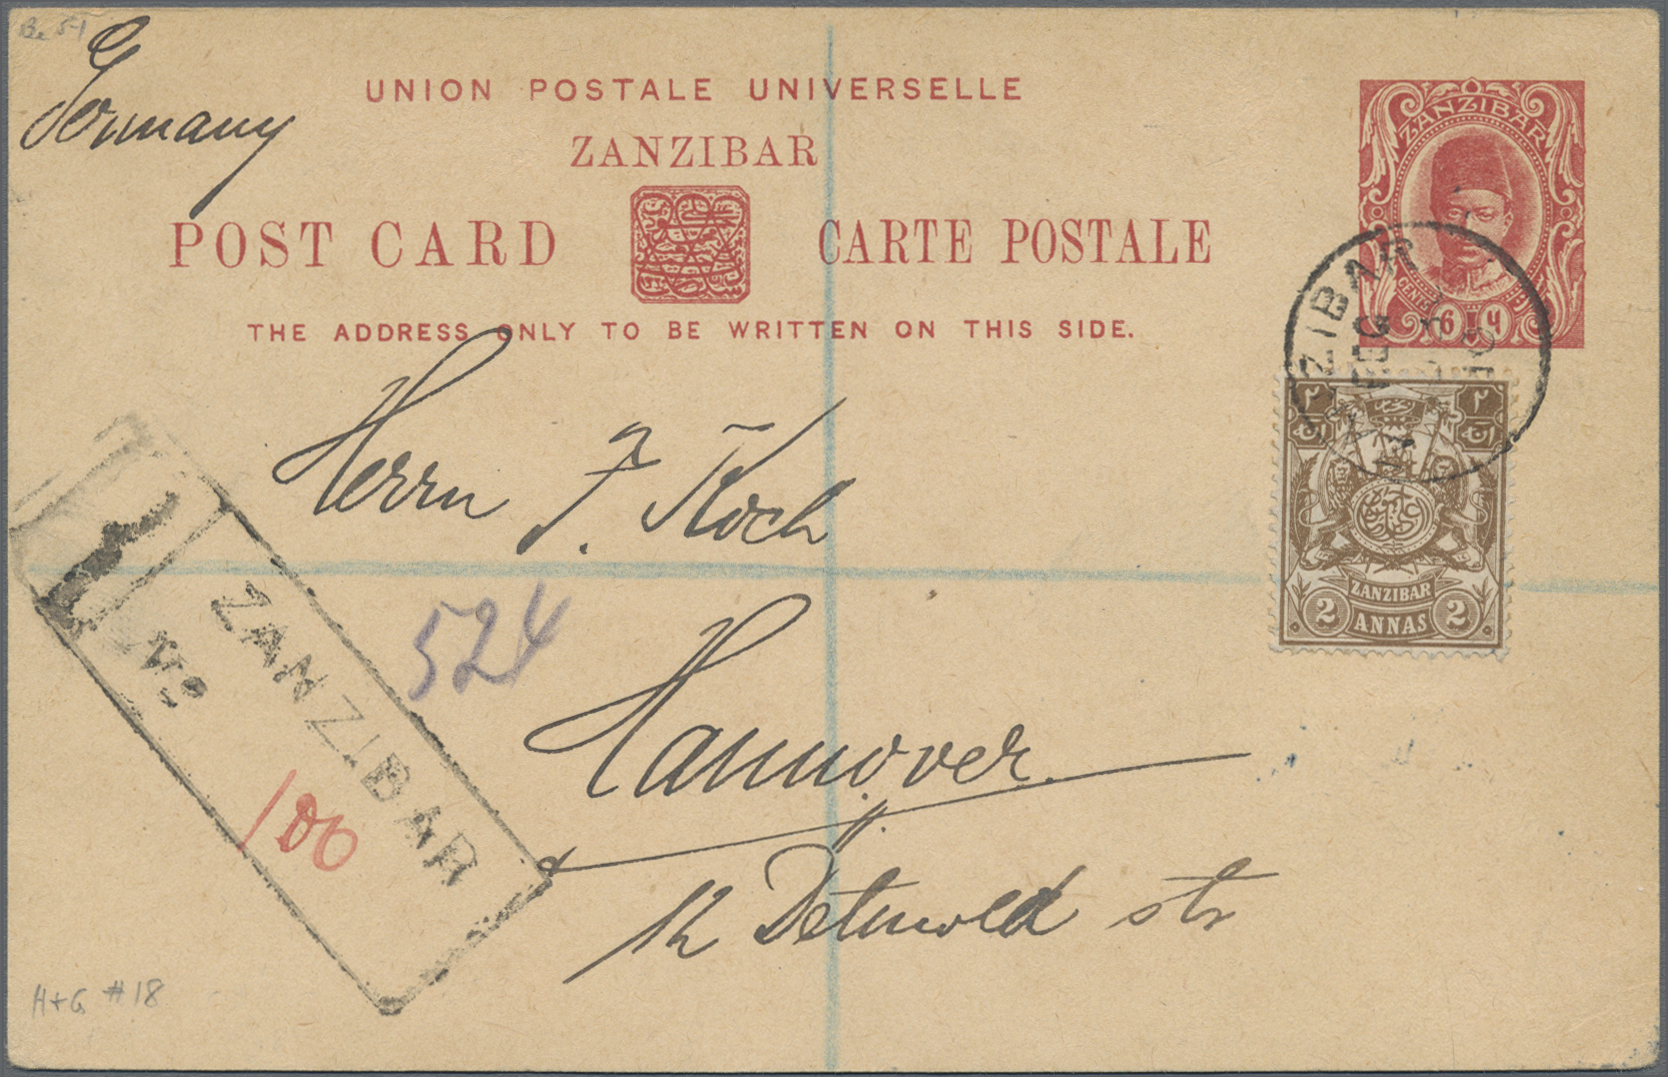 Be 51
Germany
UNION POSTALE UNIVERSELLE
ZANZIBAR
POST CARD CARTE POSTALE
THE ADDRESS ONLY TO BE WRITTEN ON THIS SIDE.
ZANZIBAR
CENTS
6 ٦
ZANZIBAR
REG
٢ ٢
انه انه
ZANZIBAR
2 ANNAS 2
Herrn F. Koch
Hannover
12 Detmold str
524
R
ZANZIBAR
No
100
H+G #18